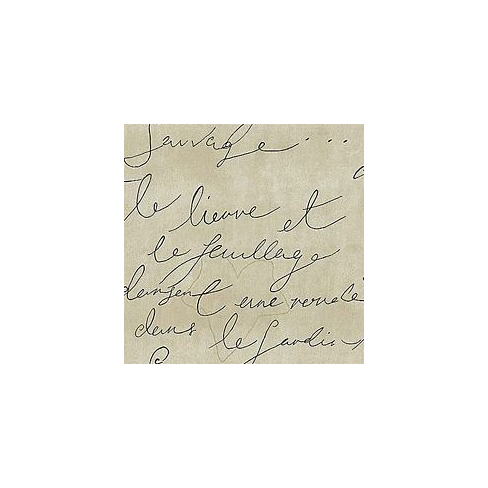 Sauvage ...
le lierre et
le feuillage
dansent une ronde
dans le jardin